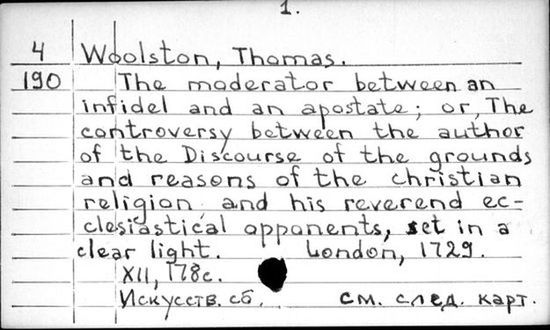 1.
4 Woolston, Thomas.
190 The moderator between an
infidel and an apostate; or, The
controversy between the author
of the Discourse of the grounds
and reasons of the christian
religion and his reverend ec-
clesiastical opponents, set in a
clear light. London, 1729.
XII, 178c.
Искусств. сб. см. след. карт.